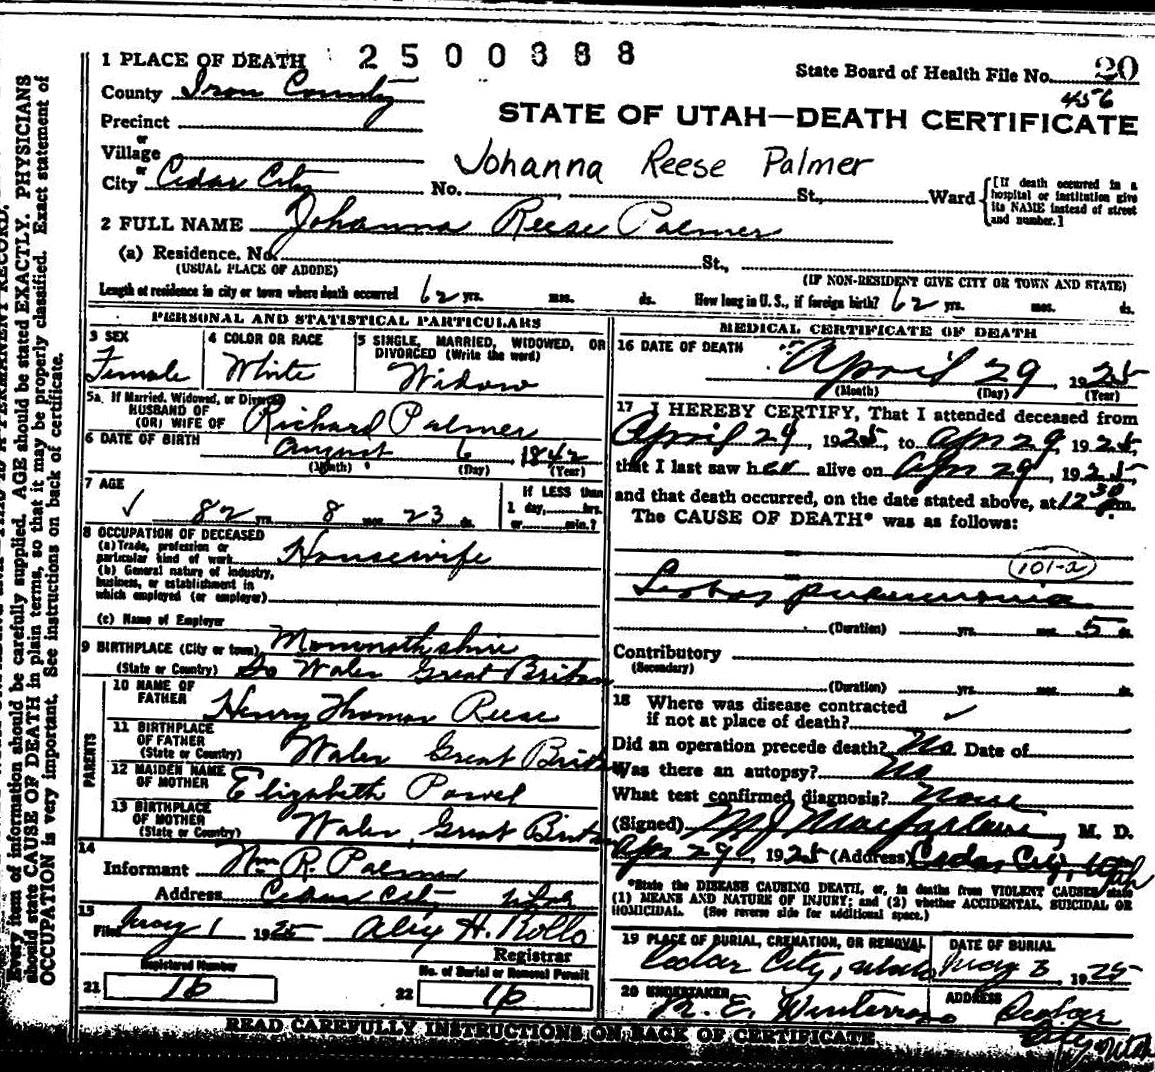 1 PLACE OF DEATH 2500388
State Board of Health File No. 20
County Iron County 456
STATE OF UTAH—DEATH CERTIFICATE
Precinct
or
Village
Johanna Reese Palmer
City or Cedar City No. St., Ward
[If death occurred in a hospital or institution give its NAME instead of street and number.]
2 FULL NAME Johanna Reese Palmer
(a) Residence. No. St.,
(USUAL PLACE OF ABODE) (IF NON-RESIDENT GIVE CITY OR TOWN AND STATE)
Length of residence in city or town where death occurred 62 yrs. mos. ds. How long in U. S., if foreign birth? 62 yrs. mos. ds.
PERSONAL AND STATISTICAL PARTICULARS
3 SEX 4 COLOR OR RACE 5 SINGLE, MARRIED, WIDOWED, OR
DIVORCED (Write the word)
Female White Widow
5a. If Married, Widowed, or Divorced
HUSBAND OF
(OR) WIFE OF Richard Palmer
6 DATE OF BIRTH August 6, 1842
(Month) (Day) (Year)
7 AGE If LESS than
82 yrs. 8 mos. 23 ds. 1 day, hrs.
or min.?
8 OCCUPATION OF DECEASED
(a) Trade, profession or
particular kind of work Housewife
(b) General nature of industry,
business, or establishment in
which employed (or employer)
(c) Name of Employer
9 BIRTHPLACE (City or town) Monmothshire
(State or Country) So Wales Great Britan
PARENTS
10 NAME OF
FATHER Henry Thomas Reese
11 BIRTHPLACE
OF FATHER
(State or Country) Wales Great Brit
12 MAIDEN NAME
OF MOTHER Elizabeth Powel
13 BIRTHPLACE
OF MOTHER
(State or Country) Wales, Great Brit
14
Informant Wm R. Palmer
Address Cedar City Utah
15
Filed May 1 1925 Alex H. Rollo
Registrar
Registered Number No. of Burial or Removal Permit
21 16 22 16
MEDICAL CERTIFICATE OF DEATH
16 DATE OF DEATH
April 29, 1925
(Month) (Day) (Year)
17 I HEREBY CERTIFY, That I attended deceased from
April 24, 1925, to Apr 29, 1925,
that I last saw her alive on Apr 29, 1925,
and that death occurred, on the date stated above, at 12 30 m.
The CAUSE OF DEATH* was as follows:
101-a
Lobar pneumonia
(Duration) yrs. mos. 5 ds.
Contributory
(Secondary)
(Duration) yrs. mos. ds.
18 Where was disease contracted
if not at place of death?
Did an operation precede death? No Date of
Was there an autopsy? No
What test confirmed diagnosis? None
(Signed) M J Macfarlane, M. D.
Apr 29, 1925 (Address) Cedar City, Utah
*State the DISEASE CAUSING DEATH, or, in deaths from VIOLENT CAUSES, state
(1) MEANS AND NATURE OF INJURY; and (2) whether ACCIDENTAL, SUICIDAL OR
HOMICIDAL. (See reverse side for additional space.)
19 PLACE OF BURIAL, CREMATION, OR REMOVAL DATE OF BURIAL
Cedar City, Utah May 3, 1925
20 UNDERTAKER ADDRESS
R. E. Winterrose Cedar
City, Utah
READ CAREFULLY INSTRUCTIONS ON BACK OF CERTIFICATE
Every item of information should be carefully supplied. AGE should be stated EXACTLY. PHYSICIANS
should state CAUSE OF DEATH in plain terms, so that it may be properly classified. Exact statement of
OCCUPATION is very important. See instructions on back of certificate.